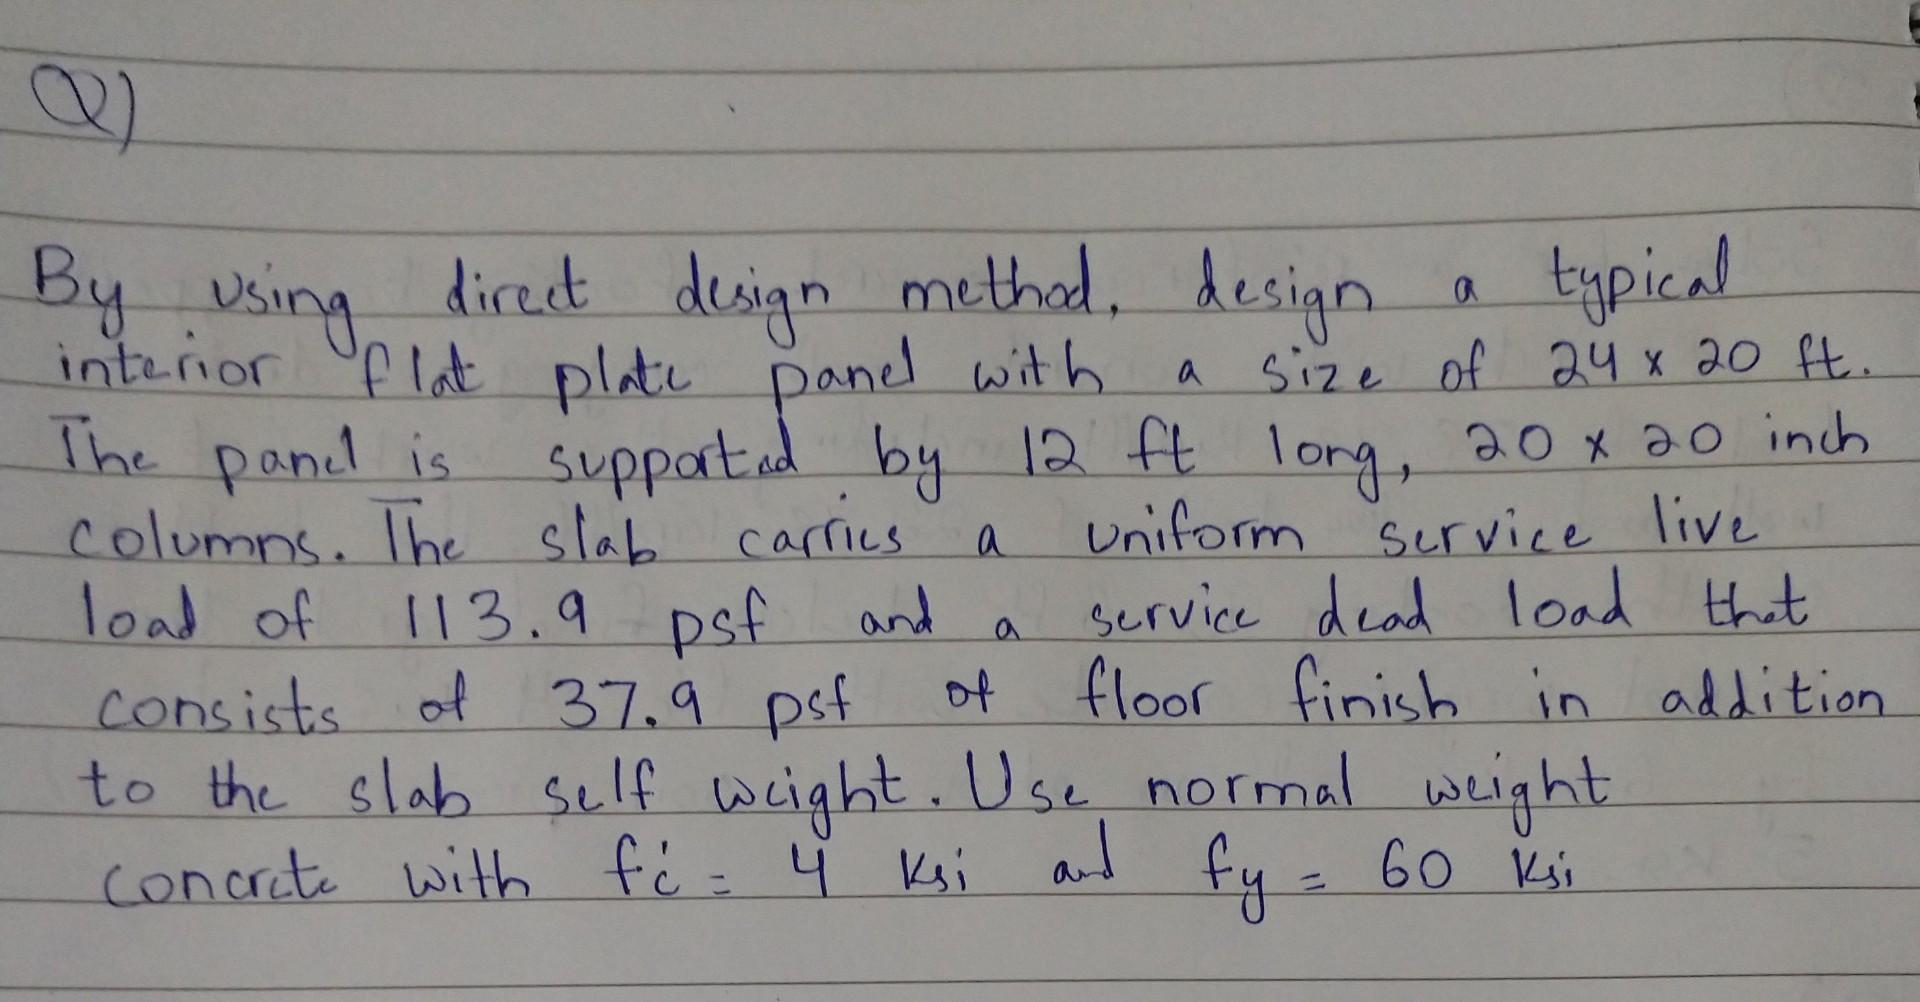 Q)
By using direct design method, design a typical
interior flat plate panel with a size of 24 x 20 ft.
The panel is supported by 12 ft long, 20 x 20 inch
columns. The slab carries a uniform service live
load of 113.9 psf and a service dead load that
consists of 37.9 psf of floor finish in addition
to the slab self weight. Use normal weight
concrete with fć = 4 Ksi and fy = 60 Ksi